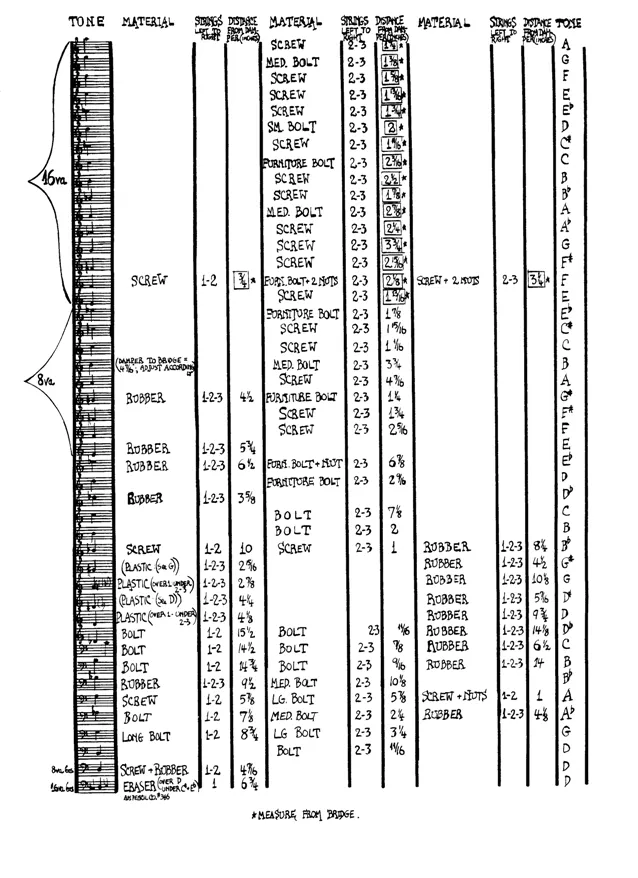 TONE MATERIAL STRINGS LEFT TO RIGHT DISTANCE FROM DAMPER (INCHES) MATERIAL STRINGS LEFT TO RIGHT DISTANCE FROM DAMPER (INCHES) MATERIAL STRINGS LEFT TO RIGHT DISTANCE FROM DAMPER (INCHES) TONE
SCREW 2-3 A
MED. BOLT 2-3 G
SCREW 2-3 F
SCREW 2-3 E
SCREW 2-3 1¾* E♭
SM. BOLT 2-3 2* D
SCREW 2-3 C#
FURNITURE BOLT 2-3 C
16va SCREW 2-3 2½* B
SCREW 2-3 1⅞* B♭
MED. BOLT 2-3 2⅞* A
SCREW 2-3 2¼* A♭
SCREW 2-3 3¾* G
SCREW 2-3 2 15/16* F#
SCREW 1-2 ¾* FURN. BOLT + 2 NUTS 2-3 2⅛* SCREW + 2 NUTS 2-3 3¼* F
SCREW 2-3 1 13/16* E
FURNITURE BOLT 2-3 1⅞ E♭
SCREW 2-3 1 15/16 C#
SCREW 2-3 1 1/16 C
(DAMPER TO BRIDGE = 4 7/16; ADJUST ACCORDINGLY) MED. BOLT 2-3 3¾ B
8va SCREW 2-3 4 7/16 A
RUBBER 1-2-3 4½ FURNITURE BOLT 2-3 1¼ G#
SCREW 2-3 1¾ F#
SCREW 2-3 2 5/16 F
RUBBER 1-2-3 5¾ E
RUBBER 1-2-3 6½ FURN. BOLT + NUT 2-3 6⅞ E♭
FURNITURE BOLT 2-3 2 9/16 D
RUBBER 1-2-3 3⅝ D♭
BOLT 2-3 7⅞ C
BOLT 2-3 2 B
SCREW 1-2 10 SCREW 2-3 1 RUBBER 1-2-3 8¼ B♭
(PLASTIC (See G)) 1-2-3 2 5/16 RUBBER 1-2-3 4½ G#
PLASTIC (OVER 1 UNDER 2-3) 1-2-3 2⅞ RUBBER 1-2-3 10⅛ G
(PLASTIC (See D)) 1-2-3 4¼ RUBBER 1-2-3 5 7/16 D#
PLASTIC (OVER 1 - UNDER 2-3) 1-2-3 4⅛ RUBBER 1-2-3 9¾ D
BOLT 1-2 15½ BOLT 2-3 11/16 RUBBER 1-2-3 14⅛ D♭
BOLT 1-2 14½ BOLT 2-3 ⅞ RUBBER 1-2-3 6½ C
BOLT 1-2 14¾ BOLT 2-3 9/16 RUBBER 1-2-3 14 B
RUBBER 1-2-3 9½ MED. BOLT 2-3 10⅛ B♭
SCREW 1-2 5⅞ LG. BOLT 2-3 5⅞ SCREW + NUTS 1-2 1 A
BOLT 1-2 7⅛ MED. BOLT 2-3 2¼ RUBBER 1-2-3 4⅛ A♭
LONG BOLT 1-2 8¾ LG BOLT 2-3 3¼ G
BOLT 2-3 11/16 D
8va bas SCREW + RUBBER 1-2 4 7/16 D
16va bas ERASER (OVER D UNDER C# + E♭) 1 6¾ D
AM. PENCIL CO. #346
*MEASURE FROM BRIDGE.